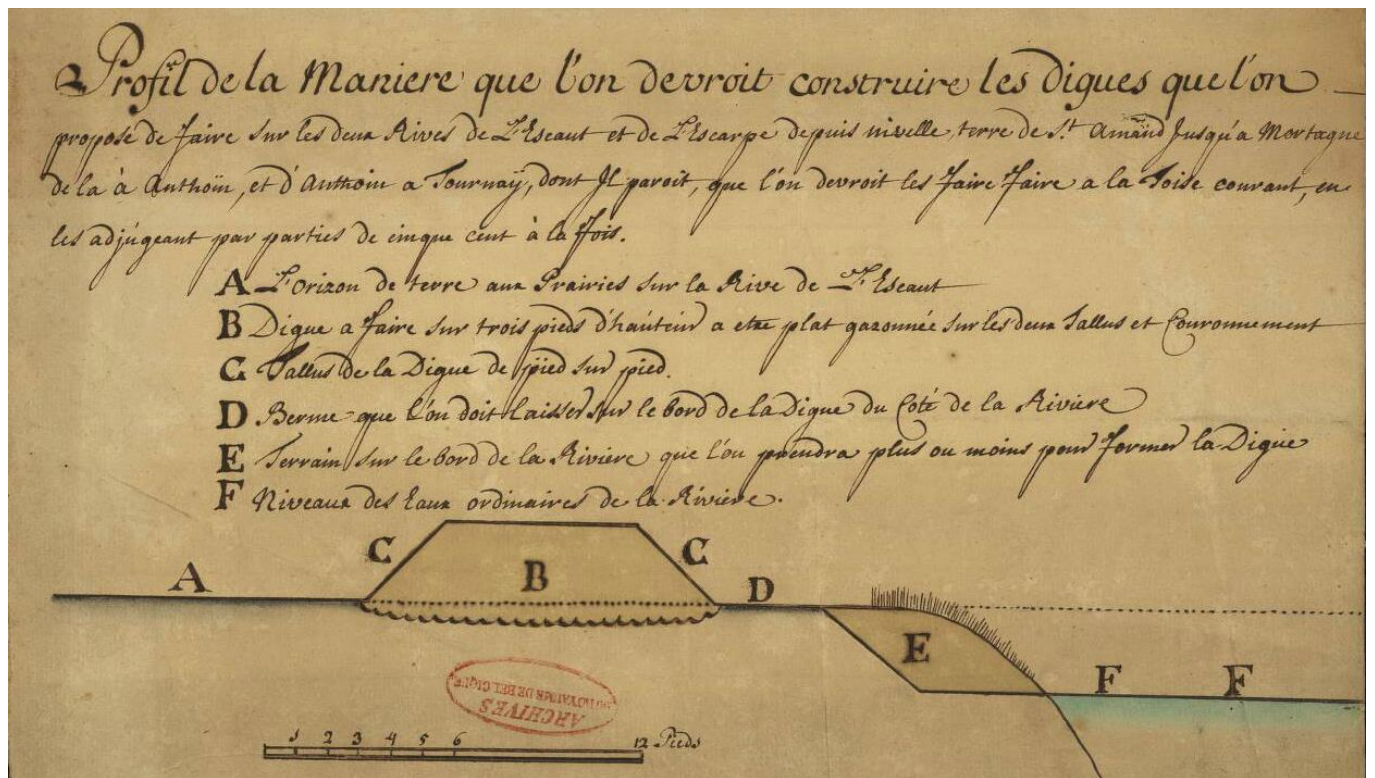 Profil de la Maniere que l'on devroit construire les Digues que l'on
proposé de faire sur les deux Rives de L'Escaut et de L'Escarpe depuis nivelle, terre de St. Amand Jusqu'a Mortagne
de la à Anthoin, et d'Anthoin a Tournaÿ, dont Jl paroit, que l'on devroit les faire faire a la Toise courant, en
les adjugeant par parties de cinque cent à la fois.
A L'orizon de terre aux Prairies sur la Rive de L'Escaut
B Digue a faire sur trois pieds d'hauteur a etre plat gazonnée sur les deux Tallus et Couronnement
C Tallus de la Digue de pied sur pied.
D Berme que l'on doit laisser sur le bord de la Digue du Coté de la Riviere
E Terrain sur le bord de la Riviere que l'on prendra plus ou moins pour former la Digue
F Niveaux des Eaux ordinaires de la Riviere.
C B C
A D
E
F F
ARCHIVES
DU ROYAUME DE BELGIQUE
1 2 3 4 5 6 12 Pieds